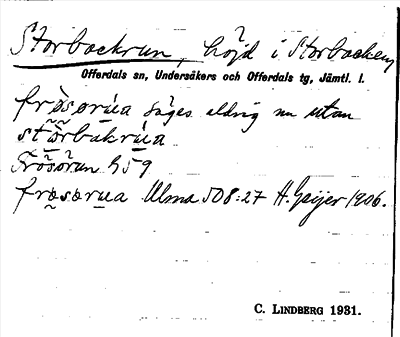 Storbackrun, höjd i Storbacken,
Offerdals sn, Undersåkers och Offerdals tg, Jämtl. l.
frösörúa säges aldrig nu utan
stòrbakrúa
Frösörun h 59
frøsorua Ulma 508:27 H. Geijer 1906.
C. LINDBERG 1931.